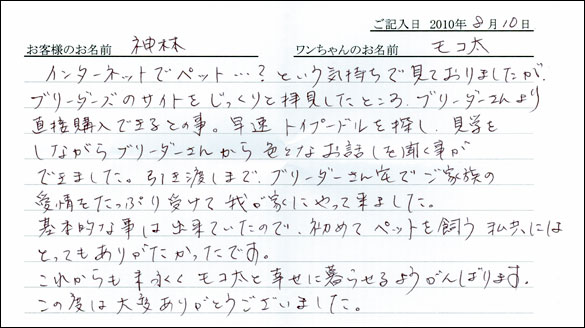 ご記入日 2010年 8月10日
お客様のお名前 神林 ワンちゃんのお名前 モコ太
インターネットでペット…?という気持ちで見ておりましたが、
ブリーダーズのサイトをじっくりと拝見したところ、ブリーダーさんより
直接購入できるとの事。早速トイプードルを探し、見学を
しながらブリーダーさんから色々なお話しを聞く事が
できました。引き渡しまで、ブリーダーさん宅でご家族の
愛情をたっぷり受けて我が家にやって来ました。
基本的な事は出来ていたので、初めてペットを飼う私共には
とってもありがたかったです。
これからも末永くモコ太と幸せに暮らせるようがんばります。
この度は大変ありがとうございました。